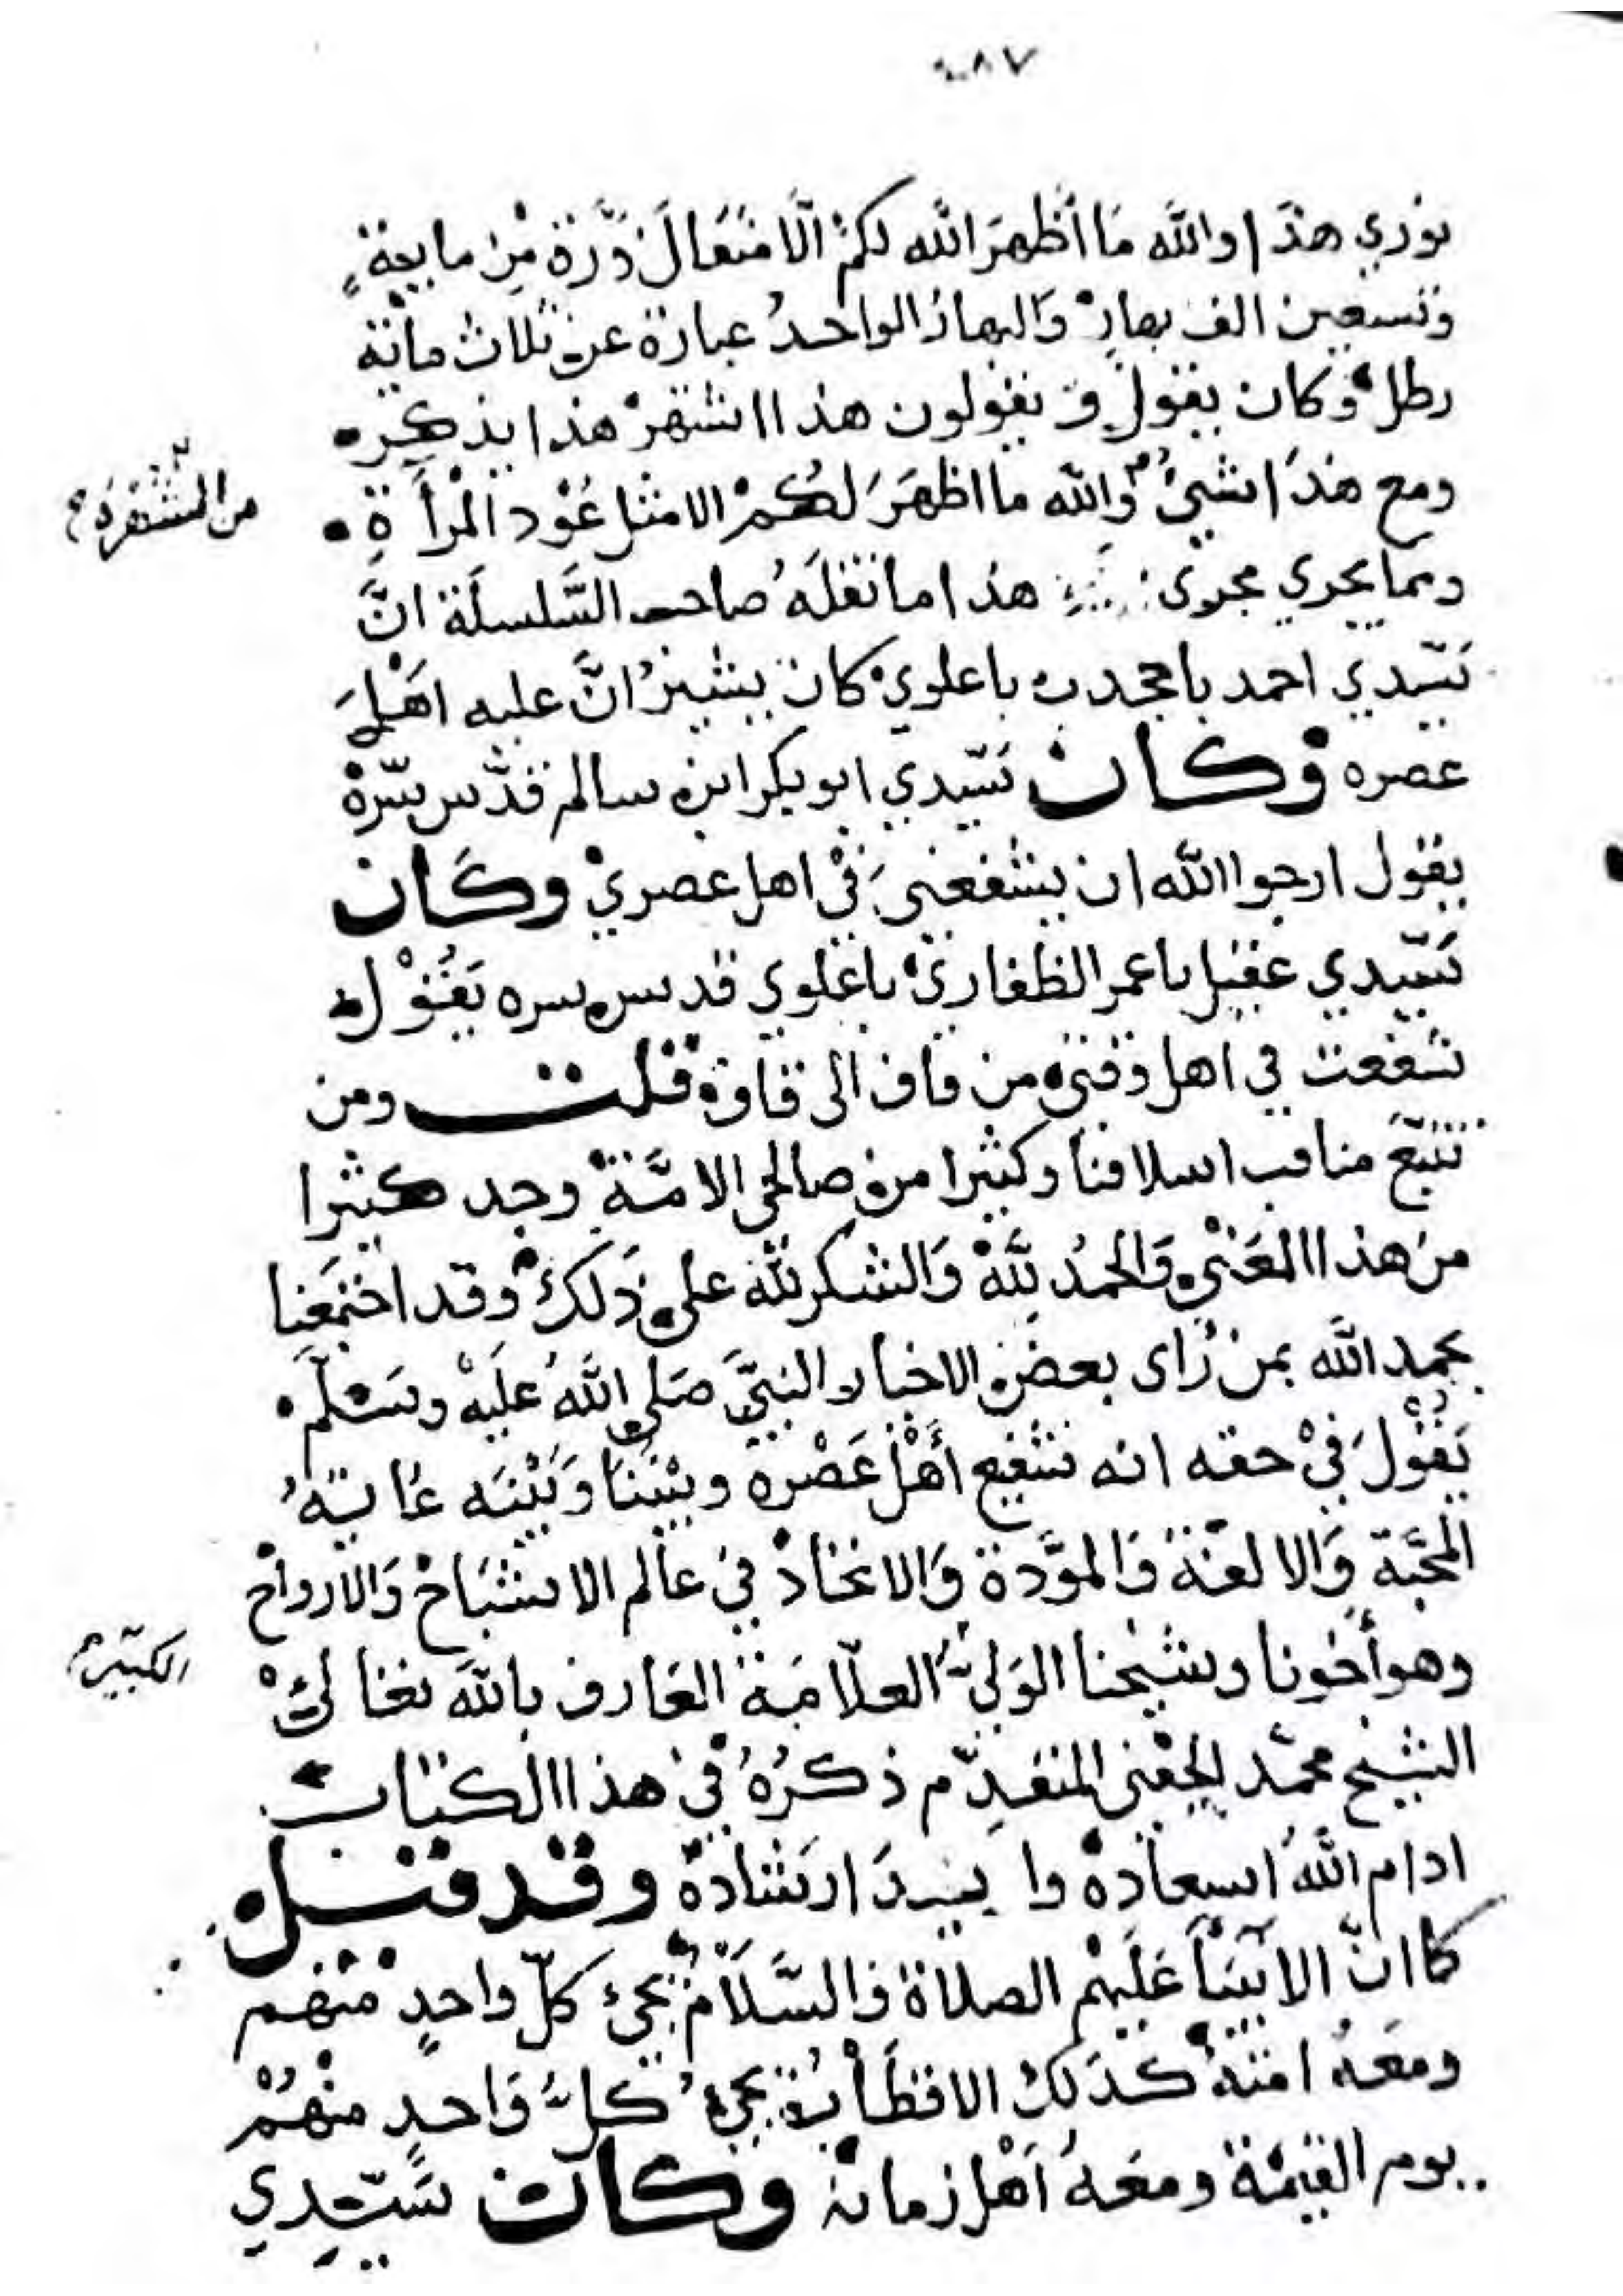 ٨٧
نوري هذا والله ما أظهر الله لكم الا مثقال ذرة من مايعة
وتسعين الف بهار والبهار الواحد عبارة عن ثلاث مائة
رطل وكان يقول و يقولون هذا اشتهر هذا يذكر
ومع هذا شيئ والله ما اظهر لكم الا مثل عود المرأة
من المشقرة
ومما يجري مجرى هذا ما نقله صاحب السلسلة ان
سيدي احمد باجحدب باعلوي كان يشير ان عليه اهل
عصره وكان سيدي ابو بكر ابن سالم قدس سره
يقول ارجوا الله ان يشفعني في اهل عصري وكان
سيدي عقيل باعمر الظفاري باعلوي قدس سره يقول
شفعت في اهل وقتي من قاف الى قاف قلت ومن
تتبع مناقب اسلافنا وكثيرا من صالحي الامة وجد كثيرا
من هذا المعنى والحمد لله والشكر لله على ذلك وقد اجتمعنا
بحمد الله بمن رأى بعض الاخيار النبي صلى الله عليه وسلم
يقول في حقه انه شفيع أهل عصره وبيننا وبينه غاية
المحبة والالفة والمودة والاتحاد في عالم الاشباح والارواح
وهو أخونا وشيخنا الولي العلامة العارف بالله تعالى
الكبير
الشيخ محمد الحفني المتقدم ذكره في هذا الكتاب
ادام الله اسعاده وا يد ارشاده وقد قيل
كما ان الانبيا عليهم الصلاة والسلام يجئ كل واحد منهم
ومعه امته كذلك الاقطاب يجئ كل واحد منهم
يوم القيمة ومعه أهل زمانه وكان سيدي